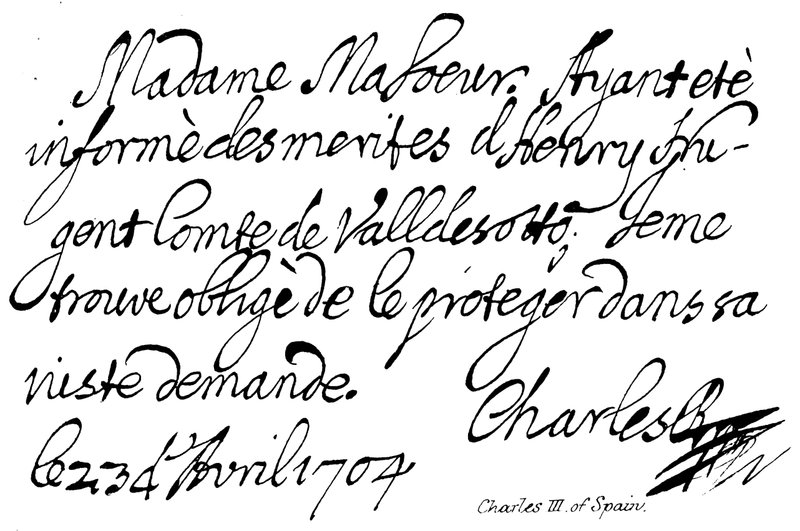 Madame Ma Soeur. Ayant etè
informè des merites d Henry Nu-
gent Comte de Valldesotto; Jeme
trouve obligè de le proteger dans sa
iuste demande.
Charles R
le 23 d' Avril 1704
Charles III. of Spain.